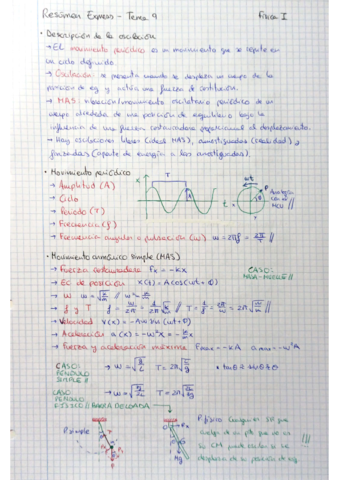 Resumen Express - Tema 9 Física I
• Descripción de la oscilación
→ El movimiento periódico es un movimiento que se repite en
un ciclo definido.
→ Oscilación: se presenta cuando se desplaza un cuerpo de la
posición de eq. y actúa una fuerza de restitución.
→ MAS: vibración/movimiento oscilatorio periódico de un
cuerpo alrededor de una posición de equilibrio bajo la
influencia de una fuerza restauradora proporcional al desplazamiento.
→ Hay oscilaciones libres (ideal MAS), amortiguadas (realidad) y
forzadas (aporte de energía a las amortiguadas).
• Movimiento periódico
→ Amplitud (A)
→ Ciclo
→ Periodo (T)
→ Frecuencia (f)
→ Frecuencia angular o pulsación (ω) ω = 2πf = 2π/T //
x T A t
ωt P
Analogía
con el
MCU //
• Movimiento armónico simple (MAS)
→ Fuerza restauradora Fx = -kx
CASO:
MASA-MUELLE //
→ Ec de posición x(t) = A cos(ωt + Φ)
→ ω ω = √k/m // ω² = k/m
→ f y T f = ω/2π = 1/2π √k/m // T = 1/f = 2π/ω = 2π√m/k //
→ Velocidad v(x) = -Aω sin(ωt + Φ)
→ Aceleración a(x) = -ω²x = -k/m x
→ Fuerza y aceleración máxima Fmax = -kA amax = -ω²A
CASO:
PÉNDULO
SIMPLE //
→ ω = √g/L T = 2π√L/g
• tan θ ≈ sin θ ≈ θ
CASO
PÉNDULO
FÍSICO // BARRA DELGADA
P. simple
P. físico: Cualquier SR que
cuelga de un pto que no es
su CM puede oscilar si se
desplaza de su posición de eq.
Mg